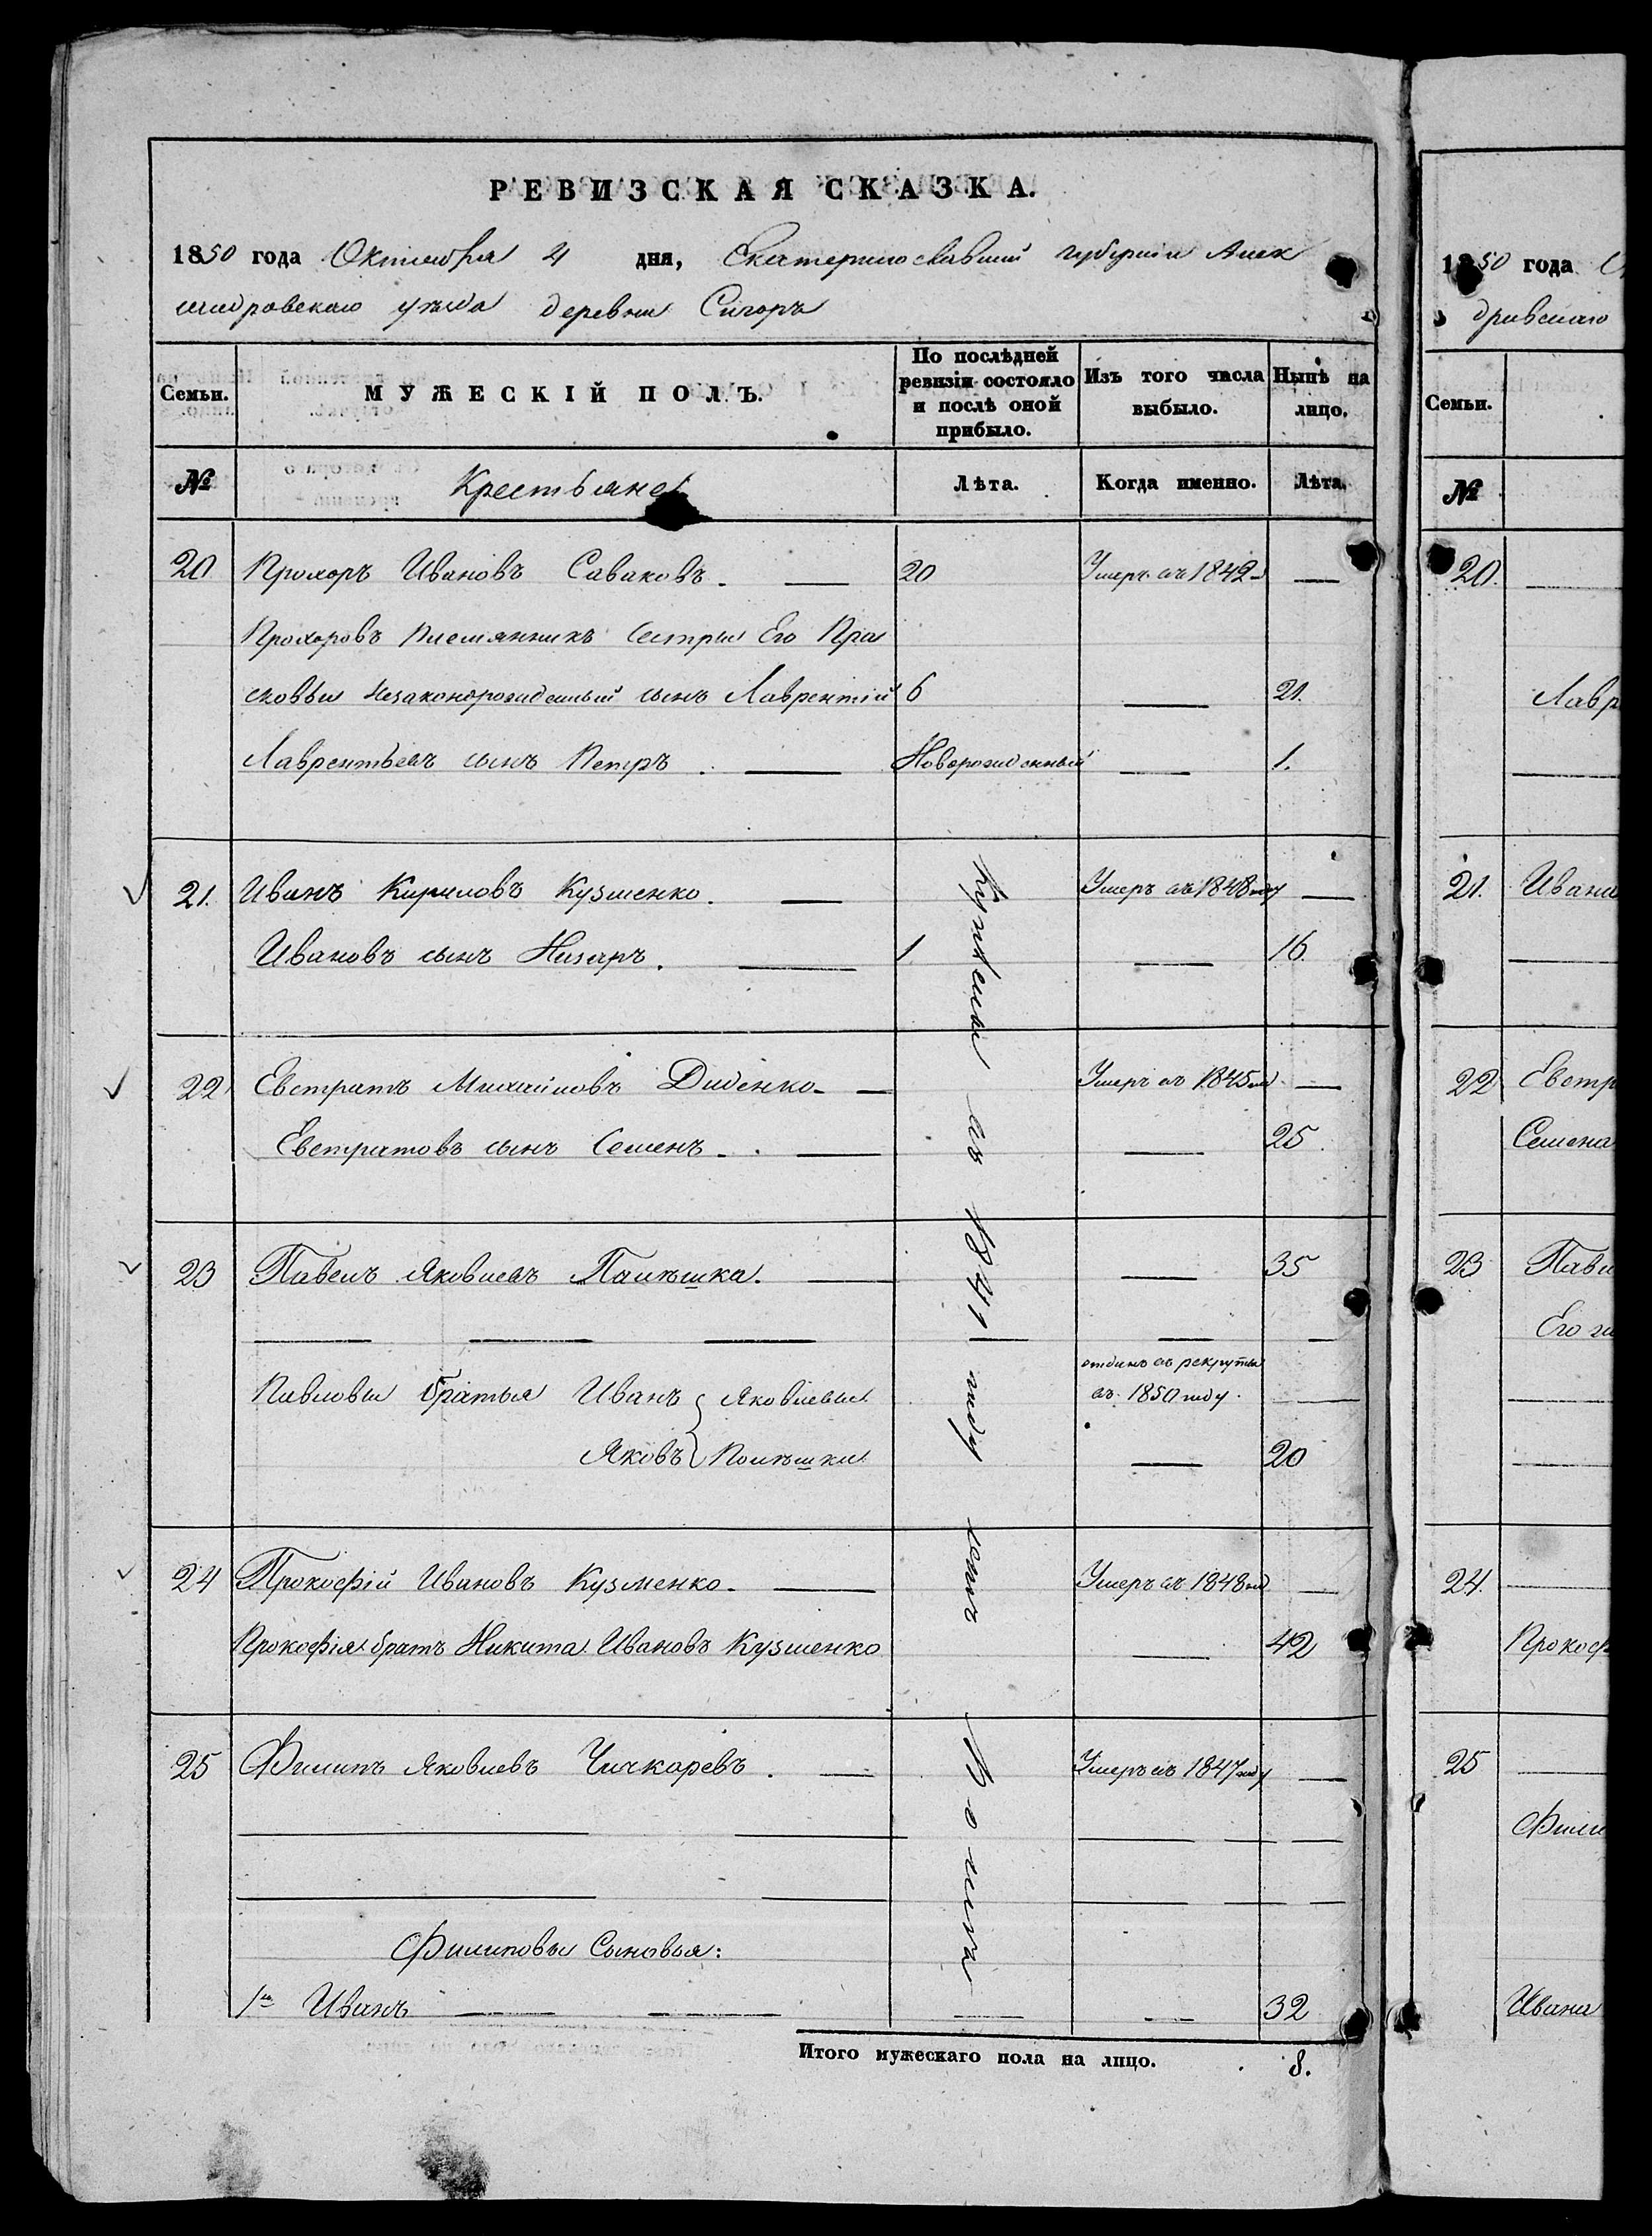 РЕВИЗСКАЯ СКАЗКА.
1850 года Октября 4 дня, Екатеринославской губернiи Алек
сандровскаго уѣзда деревни
Семьи.
МУЖЕСКIЙ ПОЛЪ.
По послѣдней ревизiи состояло и послѣ оной прибыло.
Изъ того числа выбыло.
Нынѣ на лицо.
№
Крестьяне
Лѣта.
Когда именно.
Лѣта.
20 Прохоръ Ивановъ Саваковъ. 20 Умеръ въ 1842
Прохоровъ племянникъ сестры Его Пра
сковьи незаконорожденный сынъ Лаврентiй 6 21.
Лаврентьевъ сынъ Петръ. Новорожденный 1.
21. Иванъ Кириловъ Кузменко. Умеръ въ 1848 году
Ивановъ сынъ Назаръ. 1 16.
22 Евстратъ Михайловъ Диденко Умеръ въ 1845
Евстратовъ сынъ Семенъ. 25.
23 Павелъ Яковлевъ 35
отданъ въ рекруты
Павловы братья Иванъ Яковлевы въ 1850 году.
Яковъ 20
24 Прокофiй Ивановъ Кузменко. Умеръ въ 1848
Прокофiя братъ Никита Ивановъ Кузменко 42
25 Филипъ Яковлевъ Чичкаревъ. Умеръ въ 1847 году
Филиповы Сыновья:
1й Иванъ 32
Куплены въ 1841 году
Итого мужескаго пола на лицо. 8.
1850 года
Семьи.
№
20.
Лавр
21. Ивана
22 Евстр
Семена
23 Павл
Его
24.
Прокоф
25
Фили
Ивана